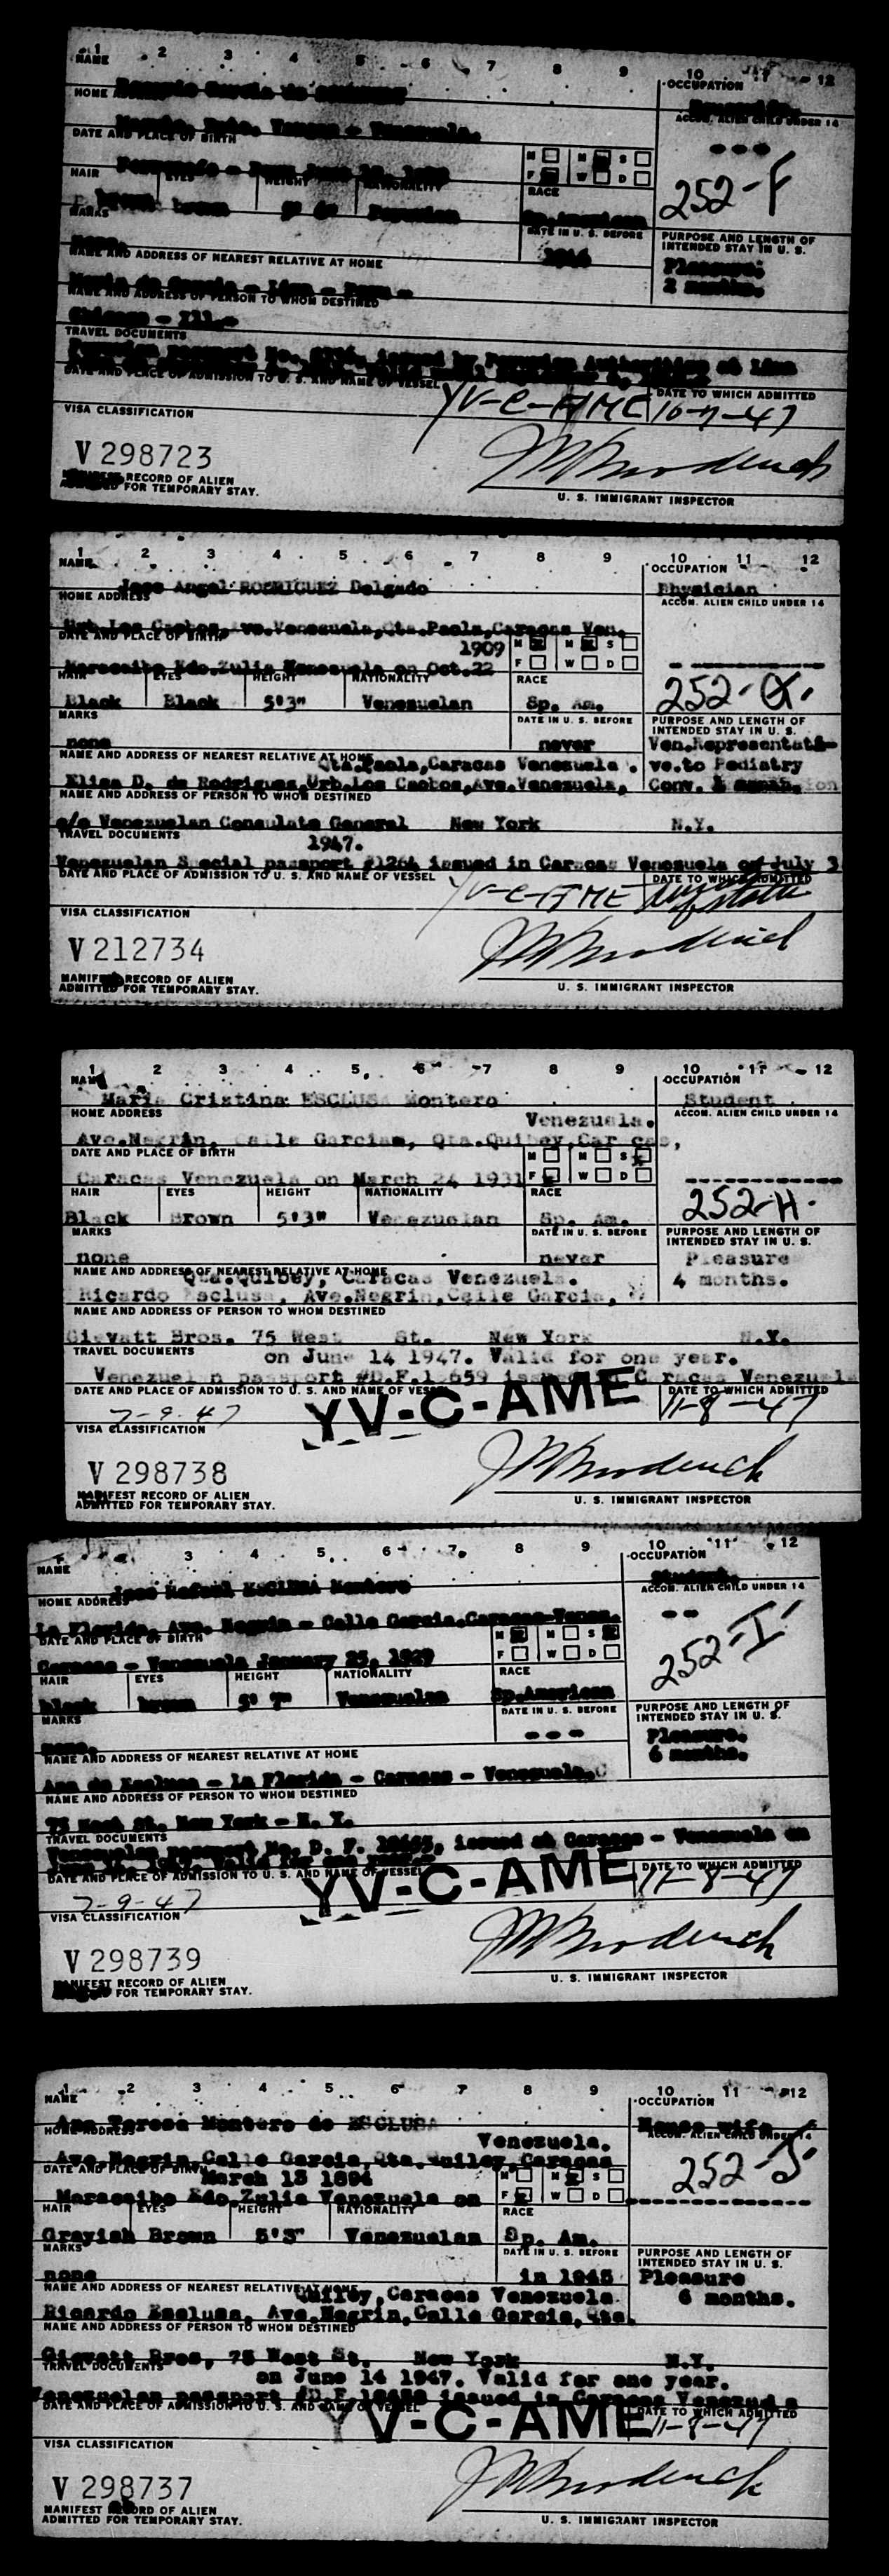 1 2 3 4 5 6 7 8 9 10 11 12
NAME OCCUPATION
HOME
ACCOM. ALIEN CHILD UNDER 14
Venezuela.
DATE AND PLACE OF BIRTH
M M S
F W D
HAIR EYES HEIGHT NATIONALITY RACE
brown brown Peruvian Sp. American
252-F
MARKS DATE IN U. S. BEFORE PURPOSE AND LENGTH OF INTENDED STAY IN U. S.
none.
Pleasure;
2 months.
NAME AND ADDRESS OF NEAREST RELATIVE AT HOME
Maria de Garcia - Lima - Peru -
NAME AND ADDRESS OF PERSON TO WHOM DESTINED
Chicago - Ill.-
TRAVEL DOCUMENTS
issued by Peruvian Authorities at Lima
DATE AND PLACE OF ADMISSION TO U. S. AND NAME OF VESSEL DATE TO WHICH ADMITTED
YV-C-AME 10-9-47
VISA CLASSIFICATION
V 298723
RECORD OF ALIEN
FOR TEMPORARY STAY.
U. S. IMMIGRANT INSPECTOR
1 2 3 4 5 6 7 8 9 10 11 12
NAME OCCUPATION
Jose Angel RODRIGUEZ Delgado Physician
HOME ADDRESS ACCOM. ALIEN CHILD UNDER 14
Urb.Los Caobos, Ave.Venezuela,Qta.Paola,Caracas Ven.
DATE AND PLACE OF BIRTH 1909 M M S
Maracaibo Edo.Zulia Venezuela on Oct.22 F W D
HAIR EYES HEIGHT NATIONALITY RACE
252-G.
Black Black 5'3" Venezuelan Sp. Am.
MARKS DATE IN U. S. BEFORE PURPOSE AND LENGTH OF INTENDED STAY IN U. S.
none never Ven.Representati-
NAME AND ADDRESS OF NEAREST RELATIVE AT HOME
Qta.Paola,Caracas Venezuela . ve.to Pediatry
Elisa D. de Rodriguez,Urb.Los Caobos,Ave.Venezuela, Conv.
NAME AND ADDRESS OF PERSON TO WHOM DESTINED
c/o Venezuelan Consulate General New York N.Y.
TRAVEL DOCUMENTS 1947.
Venezuelan Special passport #1264 issued in Caracas Venezuela on July 3
DATE AND PLACE OF ADMISSION TO U. S. AND NAME OF VESSEL DATE TO WHICH ADMITTED
YV-C-AME
VISA CLASSIFICATION
V 212734
MANIFEST RECORD OF ALIEN
ADMITTED FOR TEMPORARY STAY.
U. S. IMMIGRANT INSPECTOR
1 2 3 4 5 6 7 8 9 10 11 12
NAME OCCUPATION
Maria Cristina ESCLUSA Montero Student
HOME ADDRESS Venezuela. ACCOM. ALIEN CHILD UNDER 14
Ave.Negrin, Calle Garcias, Qta.Quibey,Caracas,
DATE AND PLACE OF BIRTH M M S
Caracas Venezuela on March 24 1931 F W D
HAIR EYES HEIGHT NATIONALITY RACE
252-H.
Black Brown 5'3" Venezuelan Sp. Am.
MARKS DATE IN U. S. BEFORE PURPOSE AND LENGTH OF INTENDED STAY IN U. S.
none never Pleasure
NAME AND ADDRESS OF NEAREST RELATIVE AT HOME
Qta.Quibey, Caracas Venezuela. 4 months.
Ricardo Esclusa, Ave.Negrin,Calle Garcia,
NAME AND ADDRESS OF PERSON TO WHOM DESTINED
Bros. 75 West St. New York N.Y.
TRAVEL DOCUMENTS on June 14 1947. Valid for one year.
Venezuelan passport issued in Caracas Venezuela
DATE AND PLACE OF ADMISSION TO U. S. AND NAME OF VESSEL DATE TO WHICH ADMITTED
7-9-47 YV-C-AME 11-8-47
VISA CLASSIFICATION
V 298738
MANIFEST RECORD OF ALIEN
ADMITTED FOR TEMPORARY STAY.
U. S. IMMIGRANT INSPECTOR
3 4 5 6 7 8 9 10 11 12
NAME OCCUPATION
Jose Rafael ESCLUSA Montero Student.
HOME ADDRESS ACCOM. ALIEN CHILD UNDER 14
La Florida, Ave. Negrin - Calle Garcia.Caracas-Venez.
DATE AND PLACE OF BIRTH M M S
Caracas - Venezuela January 25, 1929 F W D
252-I
HAIR EYES HEIGHT NATIONALITY RACE
black brown 5' 7" Venezuelan Sp.American
MARKS DATE IN U. S. BEFORE PURPOSE AND LENGTH OF INTENDED STAY IN U. S.
none. - - - Pleasure.
6 months.
NAME AND ADDRESS OF NEAREST RELATIVE AT HOME
Ana de Esclusa - La Florida - Caracas - Venezuela.
NAME AND ADDRESS OF PERSON TO WHOM DESTINED
75 West St. New York - N. Y.
TRAVEL DOCUMENTS
Venezuelan passport No. D. F. issued at Caracas - Venezuela on
DATE AND PLACE OF ADMISSION TO U. S. AND NAME OF VESSEL DATE TO WHICH ADMITTED
7-9-47 YV-C-AME 11-8-47
VISA CLASSIFICATION
V 298739
MANIFEST RECORD OF ALIEN
FOR TEMPORARY STAY.
U. S. IMMIGRANT INSPECTOR
1 2 3 4 5 6 7 8 9 10 11 12
NAME OCCUPATION
Ana Teresa Montero de ESCLUSA House wife
HOME ADDRESS Venezuela. ACCOM. ALIEN CHILD UNDER 14
Ave.Negrin,Calle Garcia,Qta.Quibey,Caracas
252-J
DATE AND PLACE OF BIRTH March 13 1894 M M S
Maracaibo Edo.Zulia Venezuela on F W D
HAIR EYES HEIGHT NATIONALITY RACE
Grayish Brown 5'3" Venezuelan Sp. Am.
MARKS DATE IN U. S. BEFORE PURPOSE AND LENGTH OF INTENDED STAY IN U. S.
none in 1945 Pleasure
NAME AND ADDRESS OF NEAREST RELATIVE AT HOME
Quibey,Caracas Venezuela 6 months.
Ricardo Esclusa, Ave.Negrin,Calle Garcia,Qta.
NAME AND ADDRESS OF PERSON TO WHOM DESTINED
Bros, 75 West St. New York N.Y.
TRAVEL DOCUMENTS on June 14 1947. Valid for one year.
Venezuelan passport issued in Caracas Venezuela
DATE AND PLACE OF ADMISSION TO U. S. AND NAME OF VESSEL DATE TO WHICH ADMITTED
YV-C-AME 11-8-47
VISA CLASSIFICATION
V 298737
MANIFEST RECORD OF ALIEN
ADMITTED FOR TEMPORARY STAY.
U. S. IMMIGRANT INSPECTOR